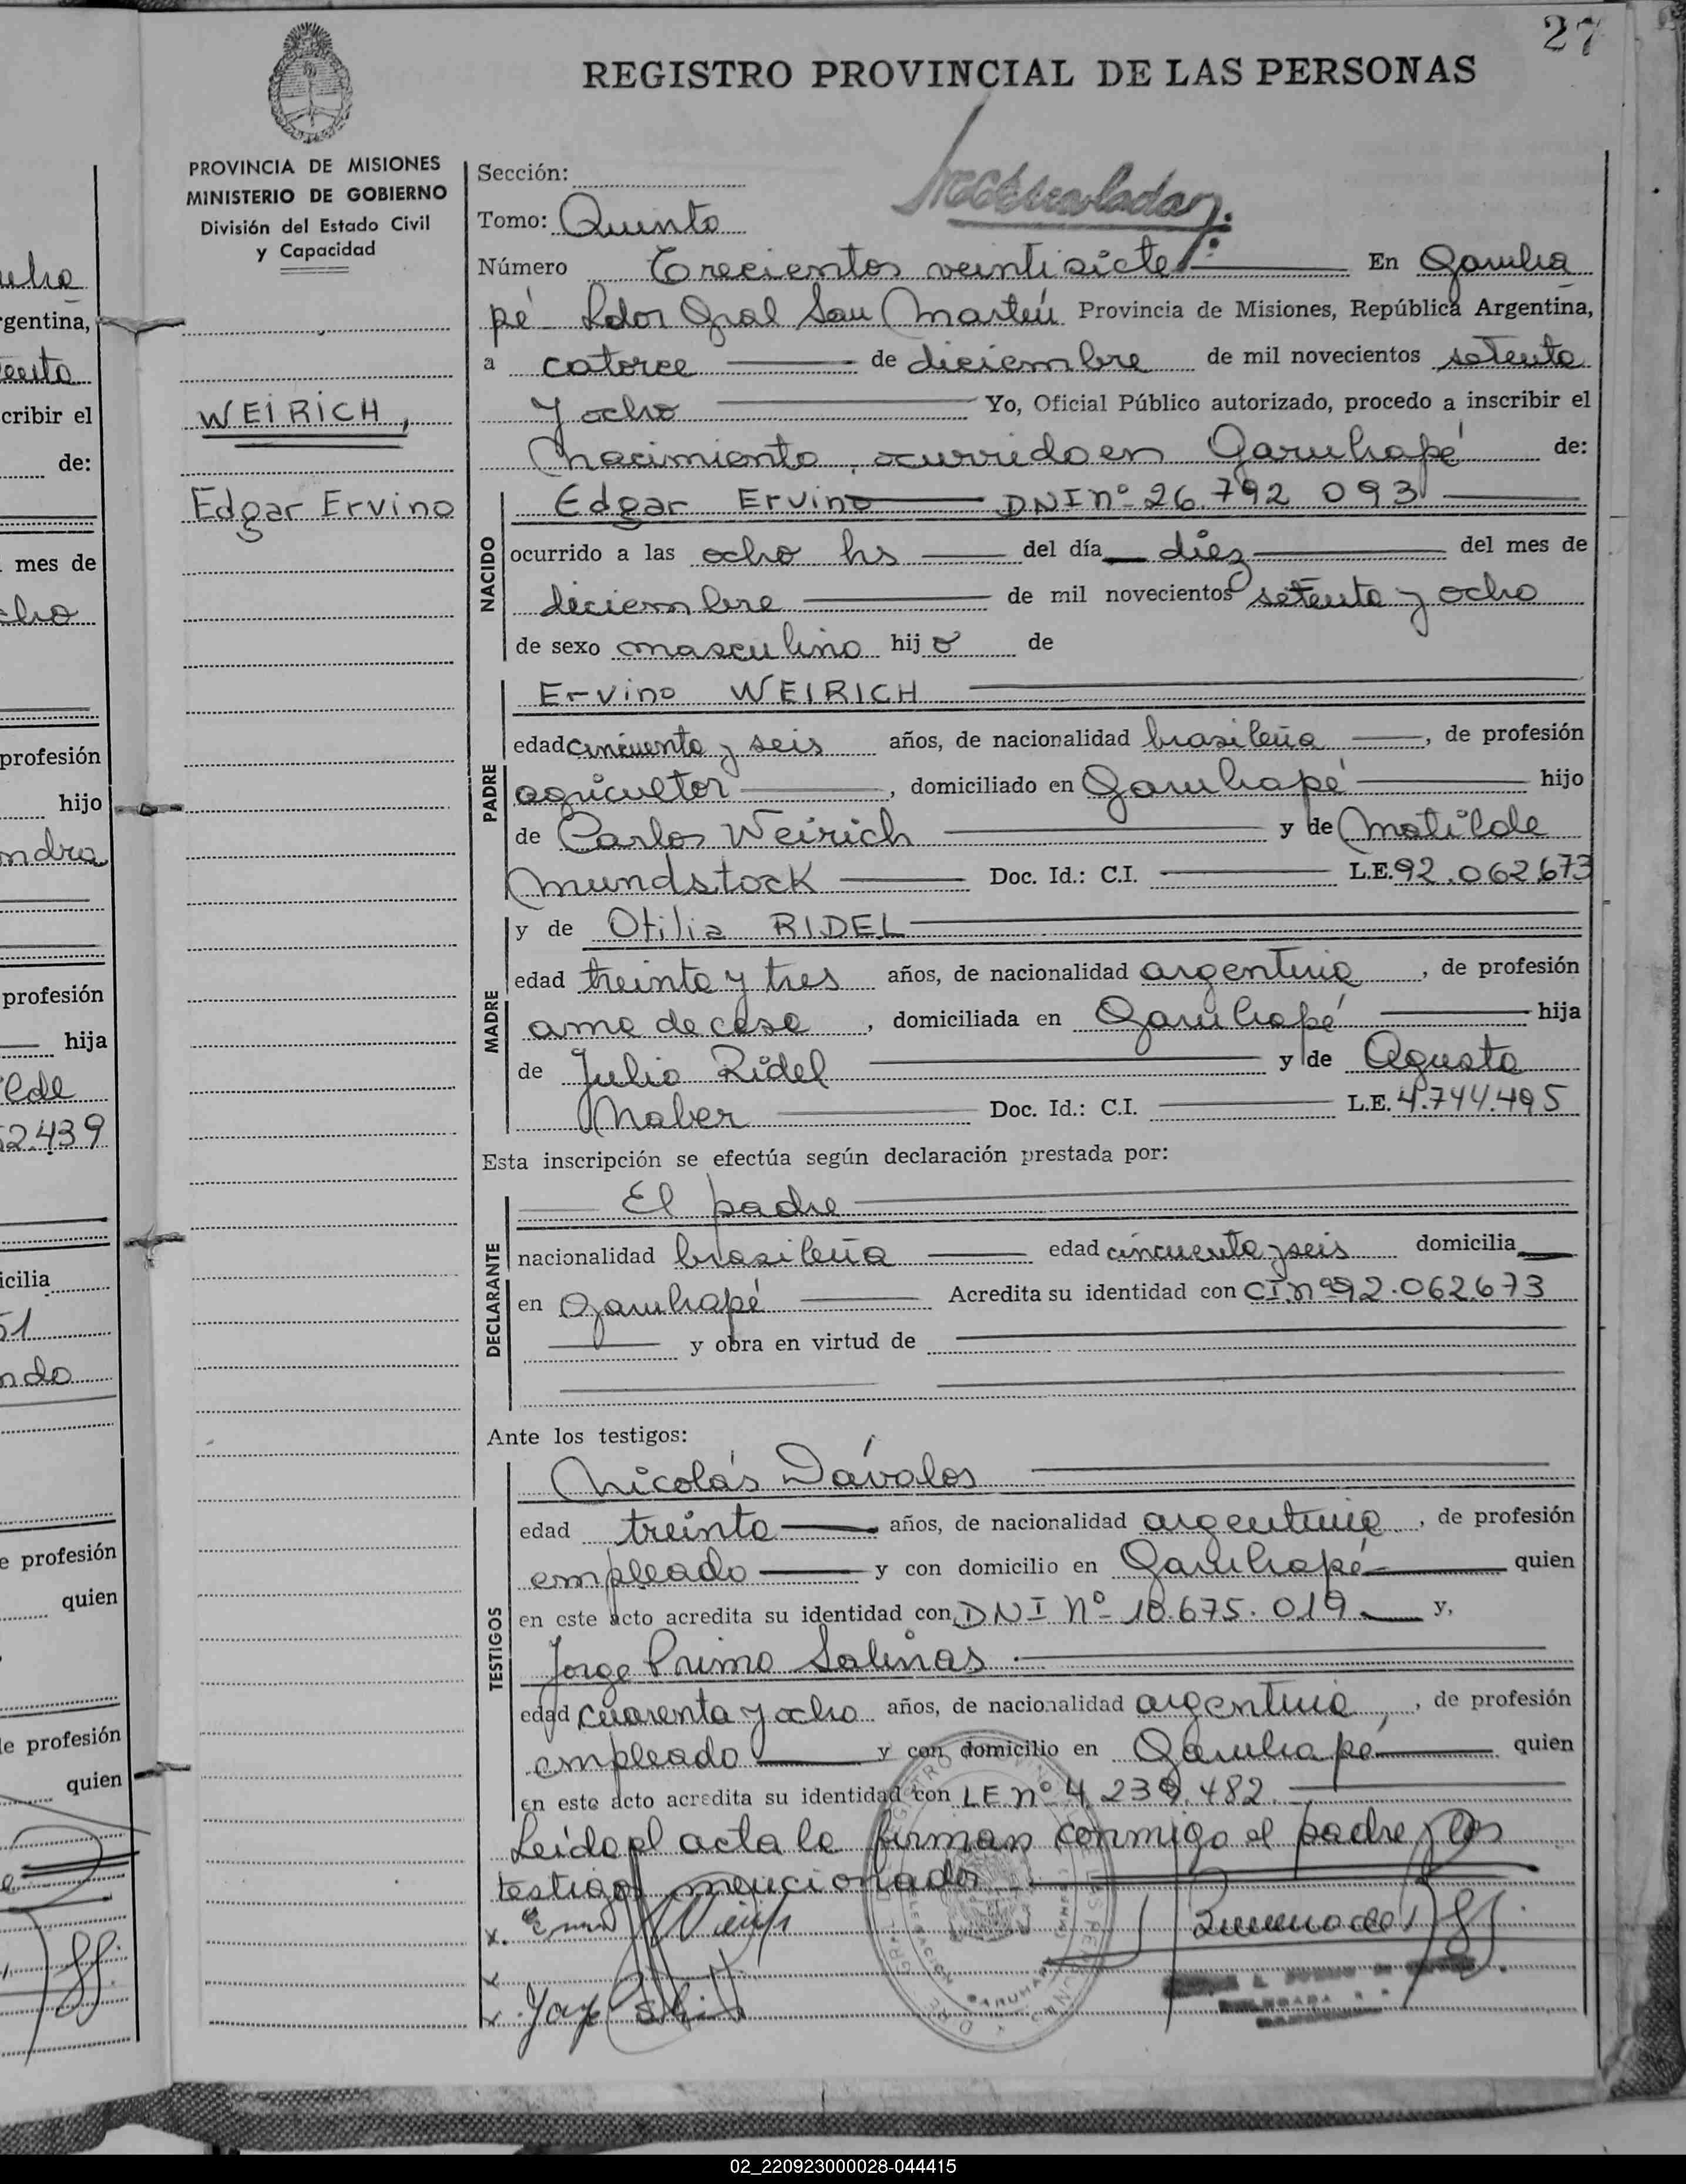 27
REGISTRO PROVINCIAL DE LAS PERSONAS
PROVINCIA DE MISIONES
MINISTERIO DE GOBIERNO
División del Estado Civil
y Capacidad
WEIRICH,
Edgar Ervino
Sección:
Tomo: Quinto
Número Trecientos veintisiete En Garuha
pé Ldor Gral San Martín Provincia de Misiones, República Argentina,
a catorce de diciembre de mil novecientos setenta
y ocho Yo, Oficial Público autorizado, procedo a inscribir el
nacimiento, ocurrido en Garuhapé de:
NACIDO
Edgar Ervino DNI nº 26.792 093
ocurrido a las ocho hs del día diez del mes de
diciembre de mil novecientos setenta y ocho
de sexo masculino hijo de
PADRE
Ervino WEIRICH
edad cincuenta y seis años, de nacionalidad brasileña, de profesión
agricultor, domiciliado en Garuhapé hijo
de Carlos Weirich y de Matilde
Mundstock Doc. Id.: C.I. L.E. 92.062.673
MADRE
y de Otilia RIDEL
edad treinta y tres años, de nacionalidad argentina, de profesión
ama de casa, domiciliada en Garuhapé hija
de Julio Ridel y de Agusta
Naber Doc. Id.: C.I. L.E. 4.744.495
Esta inscripción se efectúa según declaración prestada por:
DECLARANTE
El padre
nacionalidad brasileña edad cincuenta y seis domicilia
en Garuhapé Acredita su identidad con CI nº 92.062.673
y obra en virtud de
Ante los testigos:
TESTIGOS
Nicolás Dávalos
edad treinta años, de nacionalidad argentina, de profesión
empleado y con domicilio en Garuhapé quien
en este acto acredita su identidad con DNI Nº 10.675.019 y,
Jorge Primo Salinas
edad cuarenta y ocho años, de nacionalidad argentina, de profesión
empleado y con domicilio en Garuhapé quien
en este acto acredita su identidad con LE nº 4.239.482.
Leído el acta la firman conmigo el padre y los
testigos mencionados
02_220923000028-044415